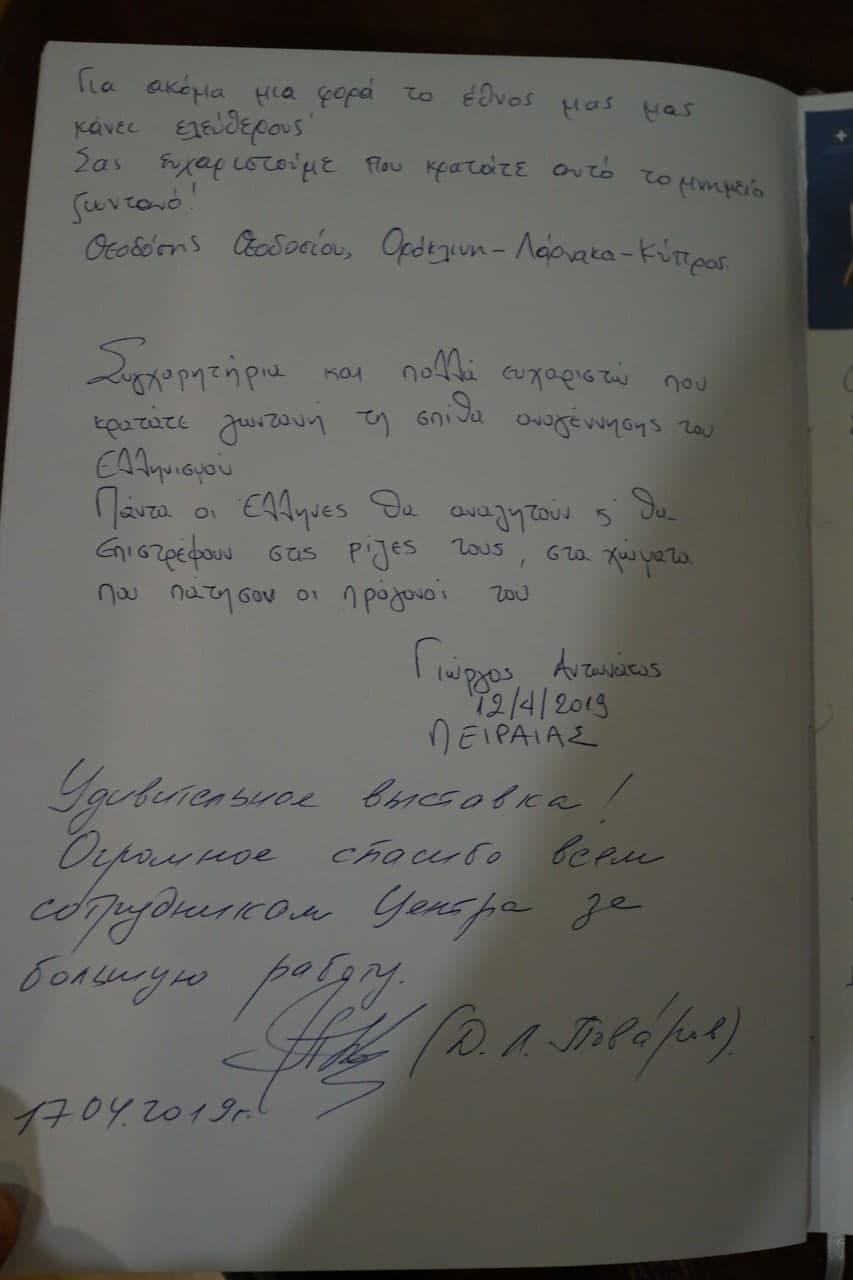 Για ακόμα μια φορά το έθνος μας μας
κάνει ελεύθερους
Σας ευχαριστούμε που κρατάτε αυτό το μνημείο
ζωντανό!
Θεοδόσης Θεοδοσίου, Ορόκλινη - Λάρνακα - Κύπρος.
Συγχαρητήρια και πολλά ευχαριστώ που
κρατάτε ζωντανή τη σπίθα αναγέννησης του
Ελληνισμού
Πάντα οι Έλληνες θα αναζητούν ϛ θα
επιστρέφουν στις ρίζες τους, στα χώματα
που πάτησαν οι πρόγονοί του
Γιώργος Αντωνάτος
12/4/2019
ΠΕΙΡΑΙΑΣ
Удивительное выставка!
Огромное спасибо всем
сотрудникам Центра за
большую работу.
(Д. Л. Пова́ров).
17.04.2019г.